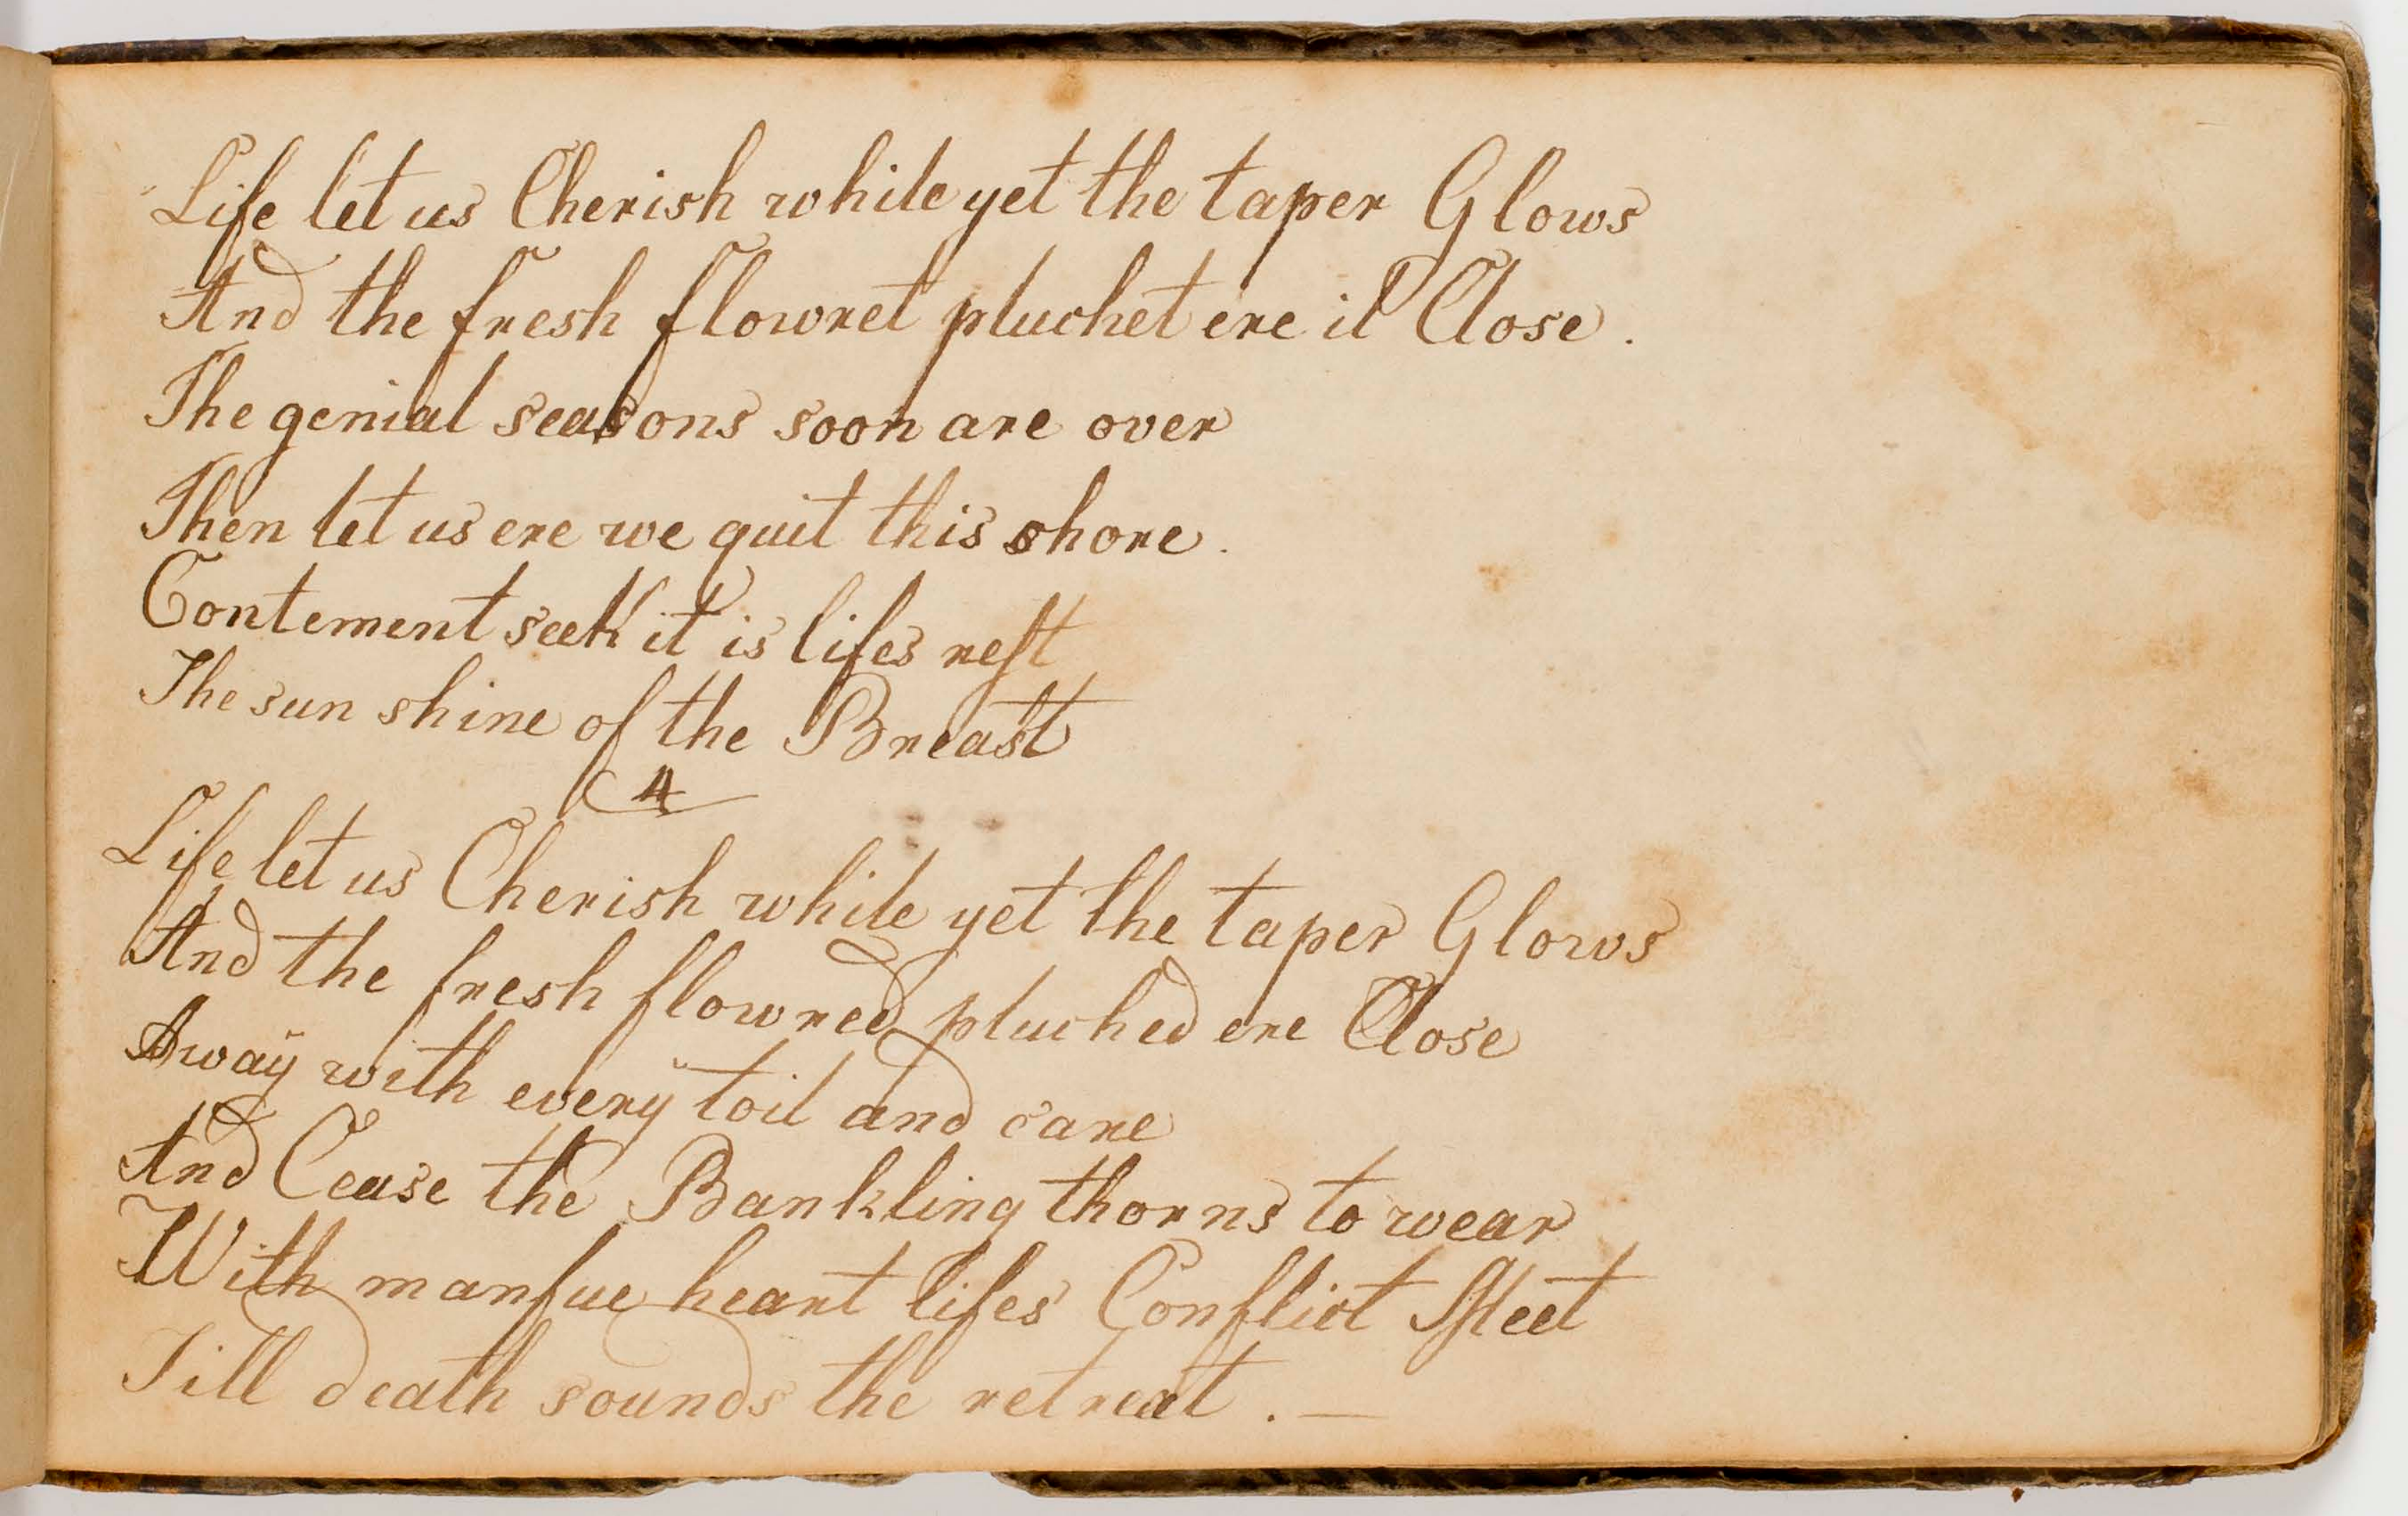 Life let us Cherish while yet the taper Glows
And the fresh flowret pluchet ere it Close.
The genial seasons soon are over
Then let us ere we quit this shore.
Contement seek it is lifes rest
The sun shine of the Breast
4
Life let us Cherish while yet the taper Glows
And the fresh flowred pluched ere Close
Away with every toil and care
And Cease the Bankling thorns to wear
With manfue heart lifes Conflict Meet
Till death sounds the retreat. —